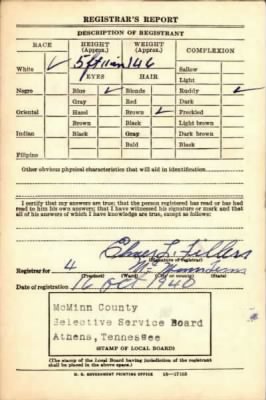 REGISTRAR'S REPORT
DESCRIPTION OF REGISTRANT
RACE HEIGHT (Approx.) WEIGHT (Approx.) COMPLEXION
White ✓ 5 ft 11 in 146 Sallow
EYES HAIR Light
Negro Blue ✓ Blonde Ruddy ✓
Gray Red Dark
Oriental Hazel Brown ✓ Freckled
Brown Black Light brown
Indian Black Gray Dark brown
Bald Black
Filipino
Other obvious physical characteristics that will aid in identification
I certify that my answers are true; that the person registered has read or has had
read to him his own answers; that I have witnessed his signature or mark and that
all of his answers of which I have knowledge are true, except as follows:
Elmer L. Fillers
(Signature of registrar)
Registrar for 4 Tenn
(Precinct) (Ward) (City or county) (State)
Date of registration 16 Oct 1940
McMinn County
Selective Service Board
Athens, Tennessee
(STAMP OF LOCAL BOARD)
(The stamp of the Local Board having jurisdiction of the registrant
shall be placed in the above space.)
U. S. GOVERNMENT PRINTING OFFICE 16—17105